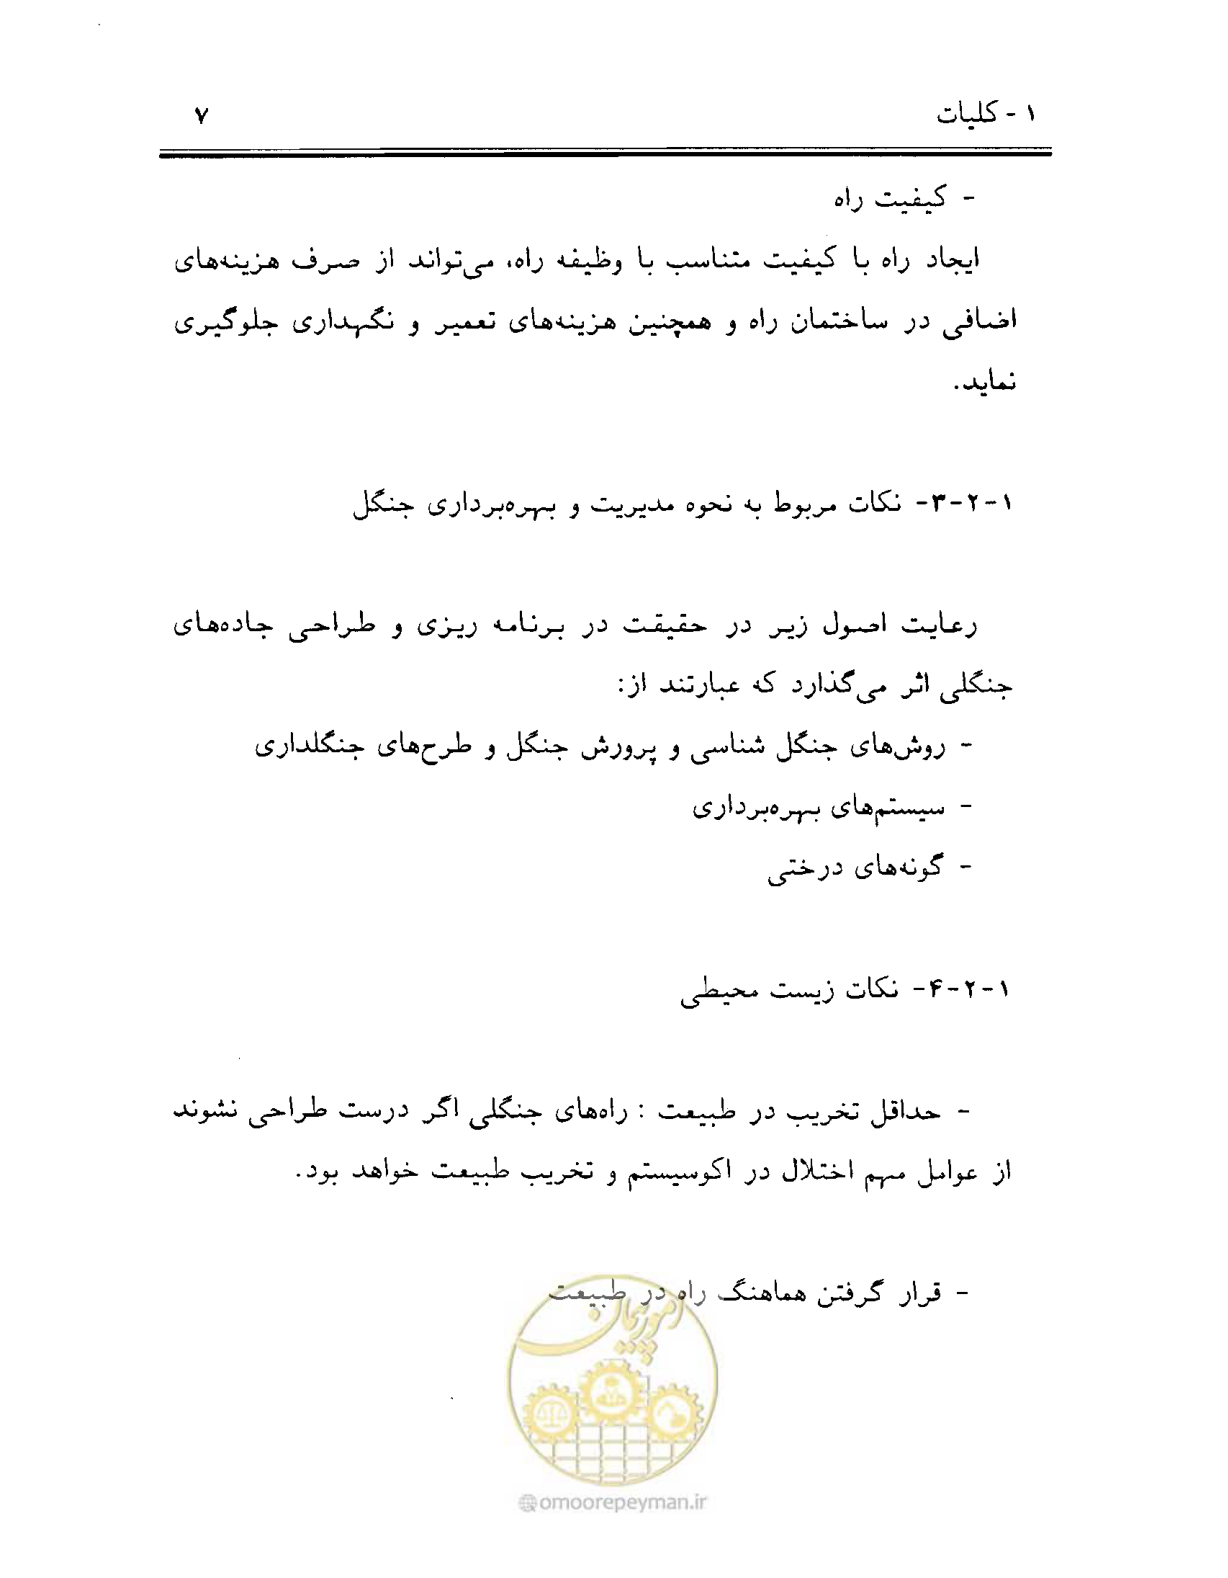 ۱ - کلیات ۷
- کیفیت راه
ایجاد راه با کیفیت متناسب با وظیفه راه، می‌تواند از صرف هزینه‌های
اضافی در ساختمان راه و همچنین هزینه‌های تعمیر و نگهداری جلوگیری
نماید.
۱-۲-۳- نکات مربوط به نحوه مدیریت و بهره‌برداری جنگل
رعایت اصول زیر در حقیقت در برنامه ریزی و طراحی جاده‌های
جنگلی اثر می‌گذارد که عبارتند از:
- روش‌های جنگل شناسی و پرورش جنگل و طرح‌های جنگلداری
- سیستم‌های بهره‌برداری
- گونه‌های درختی
۱-۲-۴- نکات زیست محیطی
- حداقل تخریب در طبیعت : راه‌های جنگلی اگر درست طراحی نشوند
از عوامل مهم اختلال در اکوسیستم و تخریب طبیعت خواهد بود.
- قرار گرفتن هماهنگ راه در طبیعت
امور پیمان
@omoorepeyman.ir